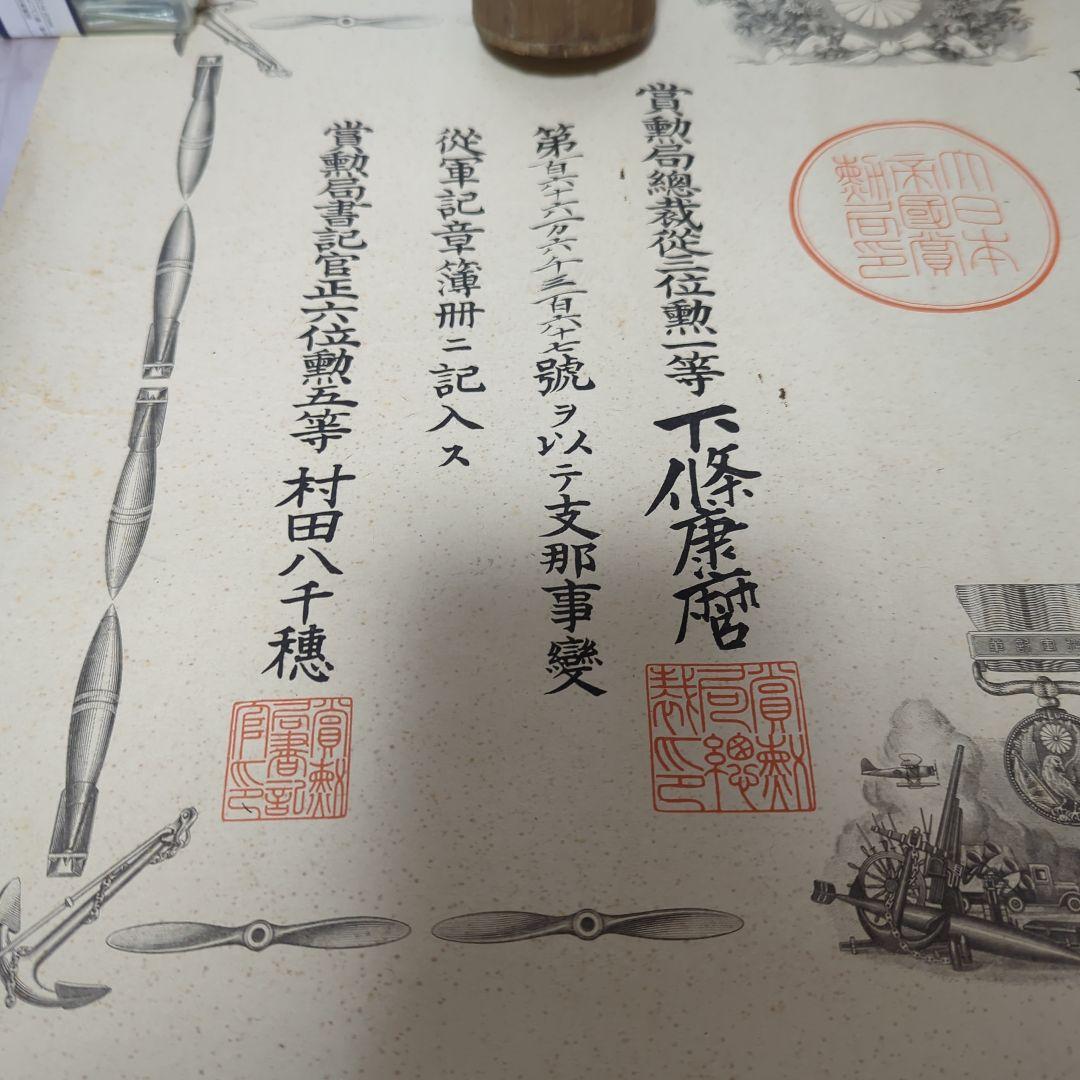 大日本
帝國賞
勲局印
賞勲局總裁從三位勲一等 下條康麿
賞勲
局總
裁印
第百六十六万六千三百六十七號ヲ以テ支那事變
從軍記章簿冊ニ記入ス
賞勲局書記官正六位勲五等 村田八千穗
賞勲
局書記
官印